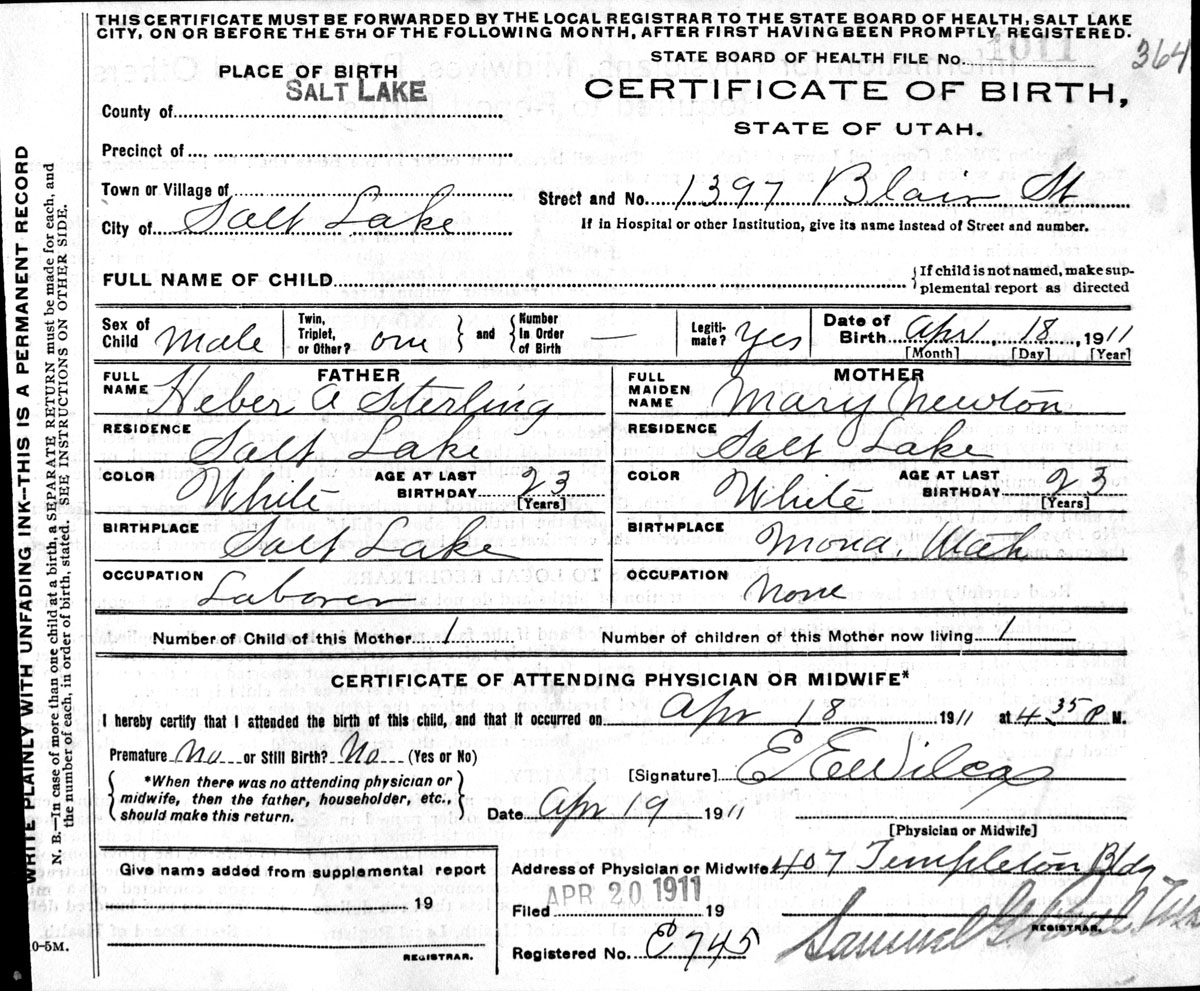 THIS CERTIFICATE MUST BE FORWARDED BY THE LOCAL REGISTRAR TO THE STATE BOARD OF HEALTH, SALT LAKE
CITY, ON OR BEFORE THE 5TH OF THE FOLLOWING MONTH, AFTER FIRST HAVING BEEN PROMPTLY REGISTERED.
STATE BOARD OF HEALTH FILE No. 364
PLACE OF BIRTH
CERTIFICATE OF BIRTH,
STATE OF UTAH.
County of SALT LAKE
Precinct of
Town or Village of
Street and No. 1397 Blair St
City of Salt Lake
If in Hospital or other Institution, give its name instead of Street and number.
FULL NAME OF CHILD
If child is not named, make sup-
plemental report as directed
Sex of Child Male
Twin, Triplet, or Other? one and Number In Order of Birth —
Legiti-mate? Yes
Date of Birth Apr, 18, 1911
[Month] [Day] [Year]
FATHER
FULL NAME Heber A Sterling
RESIDENCE Salt Lake
COLOR White AGE AT LAST BIRTHDAY 23 [Years]
BIRTHPLACE Salt Lake
OCCUPATION Laborer
MOTHER
FULL MAIDEN NAME Mary Newton
RESIDENCE Salt Lake
COLOR White AGE AT LAST BIRTHDAY 23 [Years]
BIRTHPLACE Mona, Utah
OCCUPATION None
Number of Child of this Mother 1 Number of children of this Mother now living 1
CERTIFICATE OF ATTENDING PHYSICIAN OR MIDWIFE*
I hereby certify that I attended the birth of this child, and that it occurred on Apr 18 1911 at 4 35 P M.
Premature No or Still Birth? No (Yes or No)
*When there was no attending physician or
midwife, then the father, householder, etc.,
should make this return.
[Signature] E E Wilcox
Date Apr 19 1911
[Physician or Midwife]
Give name added from supplemental report
19
REGISTRAR.
Address of Physician or Midwife 407 Templeton Bldg
Filed APR 20 1911 19
Samuel G
REGISTRAR.
Registered No. C 745
WRITE PLAINLY WITH UNFADING INK—THIS IS A PERMANENT RECORD
N. B.—In case of more than one child at a birth, a SEPARATE RETURN must be made for each, and
the number of each, in order of birth, stated. SEE INSTRUCTIONS ON OTHER SIDE.
0-5M.